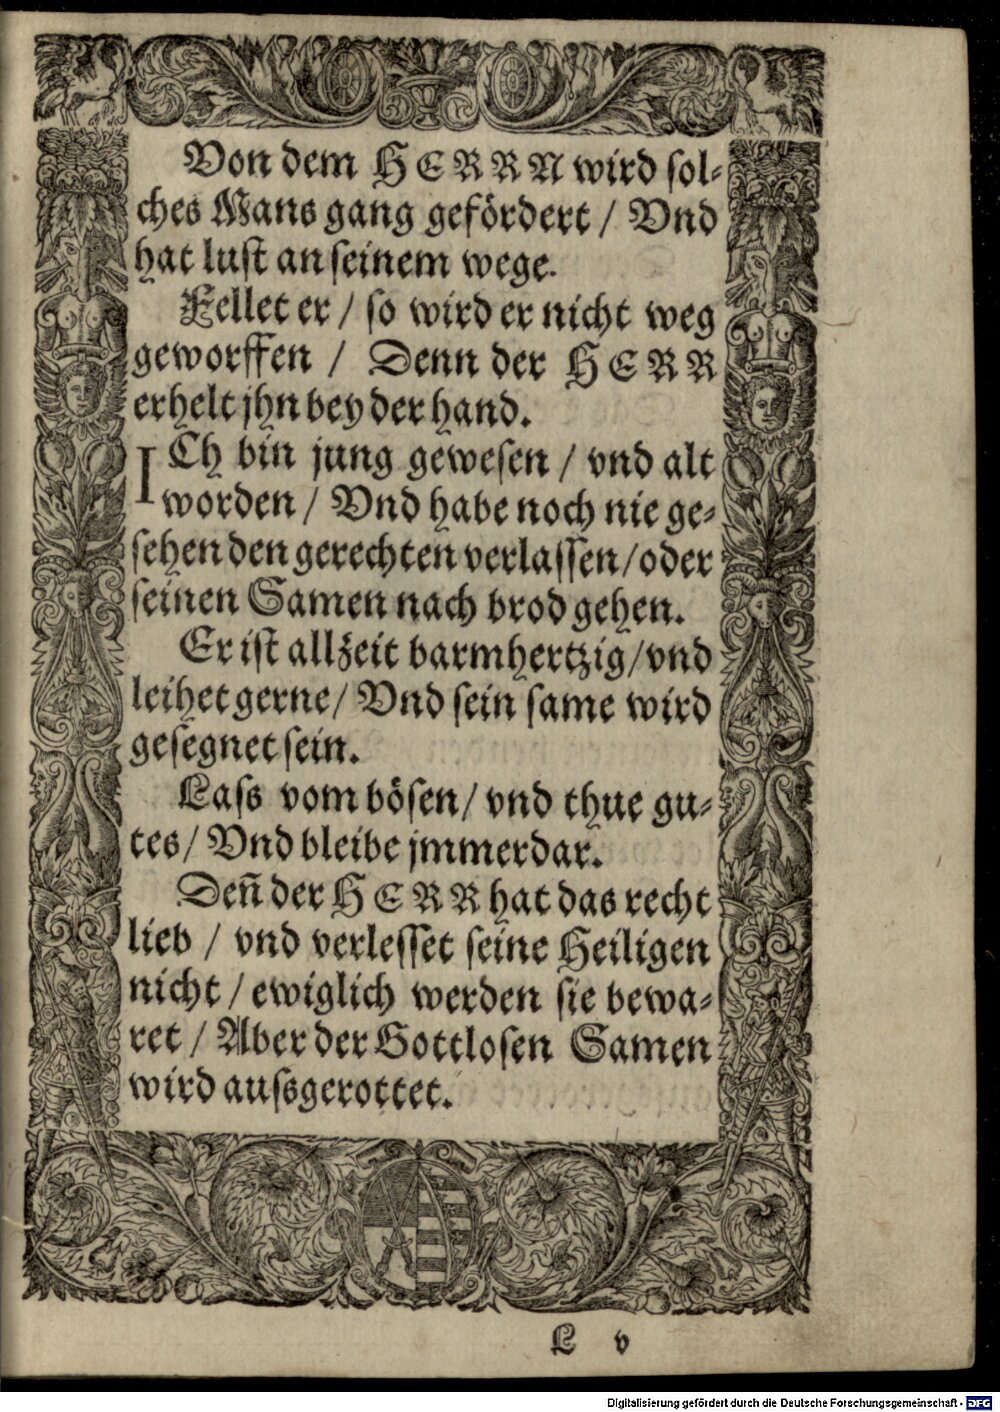 Von dem HERRN wird sol⸗
ches Mans gang gefördert / Vnd
hat lust an seinem wege.
Fellet er / so wird er nicht weg
geworffen / Denn der HERR
erhelt jhn bey der hand.
ICh bin jung gewesen / vnd alt
worden / Vnd habe noch nie ge⸗
sehen den gerechten verlassen/oder
seinen Samen nach brod gehen.
Er ist allzeit barmhertzig/vnd
leihet gerne/ Vnd sein same wird
gesegnet sein.
Lass vom bösen/ vnd thue gu⸗
tes/ Vnd bleibe jmmerdar.
Deñ der HERR hat das recht
lieb / vnd verlesset seine Heiligen
nicht / ewiglich werden sie bewa⸗
ret / Aber der Gottlosen Samen
wird aussgerottet.
L v
Digitalisierung gefördert durch die Deutsche Forschungsgemeinschaft - DFG